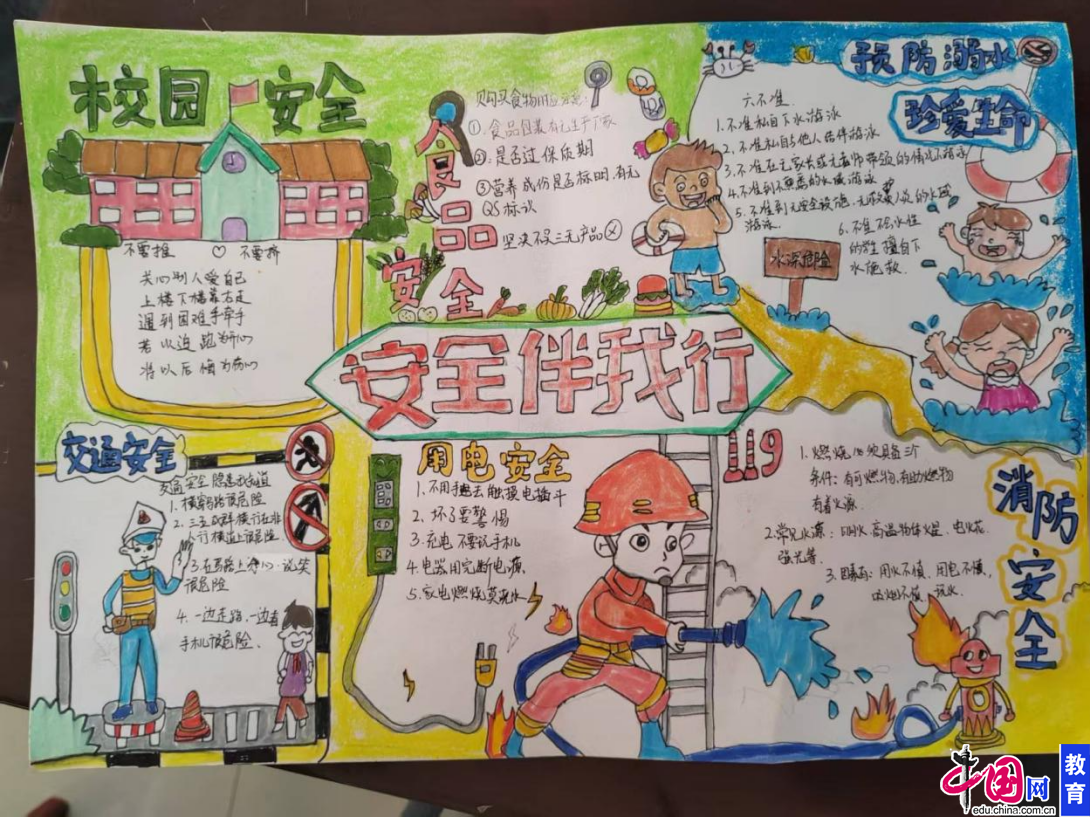 校园安全
不要推 不要挤
关心别人爱自己
上楼下楼靠右走
遇到困难手牵手
若以追跑为开心
准以后悔为病心
食品安全
购买食物时应
① 食品包装有无生产厂家
② 是否过保质期
③ 营养成份是否标明,有无
QS标认
坚决不买三无产品
预防溺水
珍爱生命
六不准
1.不准私自下水游泳
2.不准私自与他人结伴游泳
3.不准在无家长或无老师带领的情况下游泳
4.不准到不熟悉的水域游泳
5.不准到无安全设施、无救援人员的水域
游泳
6.不准不会水性
的学生擅自下
水施救.
水深危险
安全伴我行
交通安全
交通安全隐患我知道
1.横穿马路很危险
2.三五成群横行在非
人行横道上很危险
3.在马路上 说笑
很危险
4.一边走路,一边看
手机很危险.
用电安全
1.不用手去触摸电插斗
2.坏了要警惕
3.充电不要玩手机
4.电器用完断电源
5.家电燃烧莫浇水
119
消防安全
1.燃烧 必须具备
条件:有可燃物,有助燃物
有着火源.
2.常见火源:明火、高温物体火星、电火花、
强光等.
3. 用火不慎、用电不慎,
吸烟不慎、玩火.
中国网
edu.china.com.cn
教育